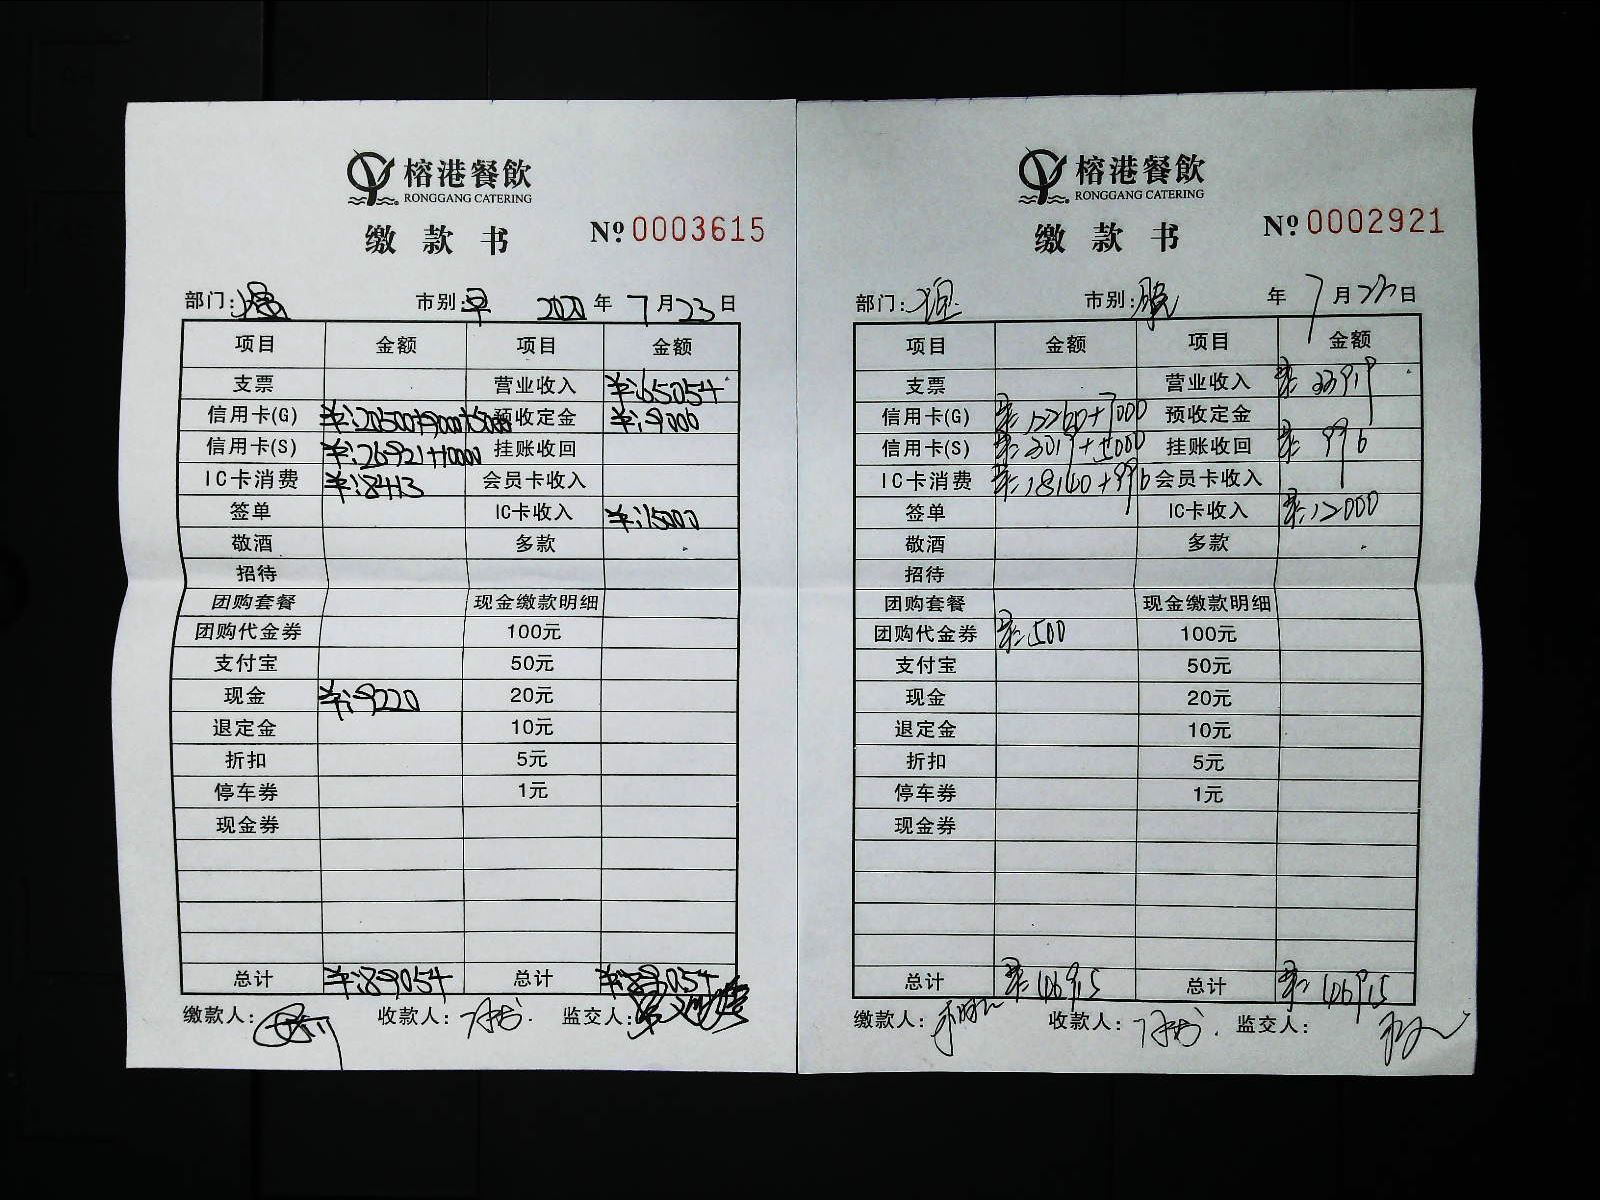 榕港餐飲
RONGGANG CATERING
缴款书 Nº 0003615
部门: 市别:早 2020年7月23日
项目 金额 项目 金额
支票 营业收入 ¥:65054
信用卡(G) ¥:20500+9000+5000 预收定金 ¥:9000
信用卡(S) ¥:26921+10000 挂账收回
IC卡消费 ¥:8413 会员卡收入
签单 IC卡收入 ¥:15000
敬酒 多款
招待
团购套餐 现金缴款明细
团购代金券 100元
支付宝 50元
现金 ¥:9220 20元
退定金 10元
折扣 5元
停车券 1元
现金券
总计 ¥:89054 总计 ¥:89054
缴款人: 收款人: 监交人:
榕港餐飲
RONGGANG CATERING
缴款书 Nº 0002921
部门: 市别: 年7月23日
项目 金额 项目 金额
支票 营业收入 ¥:33919
信用卡(G) ¥:12260+7000 预收定金
信用卡(S) ¥:3019+5000 挂账收回 ¥:996
IC卡消费 ¥:18140+996 会员卡收入
签单 IC卡收入 ¥:12000
敬酒 多款
招待
团购套餐 现金缴款明细
团购代金券 ¥:500 100元
支付宝 50元
现金 20元
退定金 10元
折扣 5元
停车券 1元
现金券
总计 ¥:46915 总计 ¥:46915
缴款人: 收款人: 监交人: